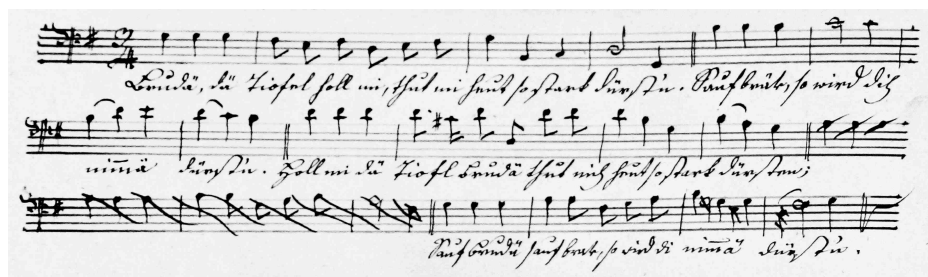 Brudä, dä Tiofel holl mi, thut mi heut so stark dürst'n. Sauf brät, so wird dich
nimä dürst'n. Holl mi dä Tiofl Brudä thut mich heut so stark dürsten;
Sauf Brudä sauf brat, so wird di nimä dürst'n.